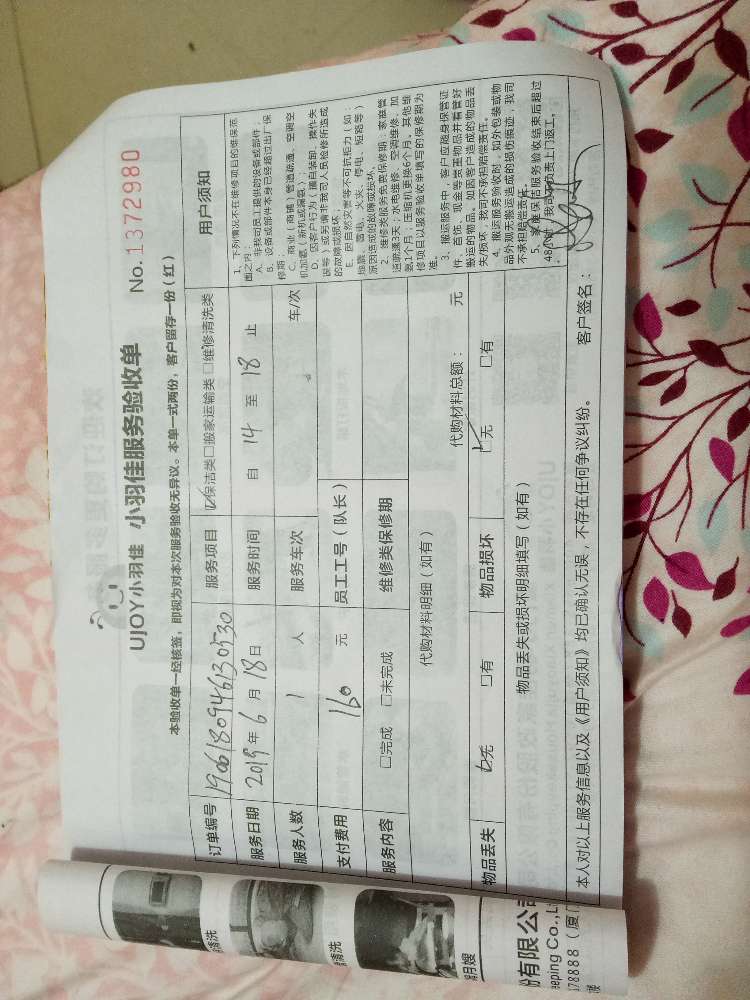 UJOY小羽佳 小羽佳服务验收单
No. 1372980
本验收单一经核签，即视为对本次服务验收无异议。本单一式两份，客户留存一份（红）
订单编号 19061809461305730 服务项目 ☑保洁类□搬家运输类□维修清洗类 用户须知
服务日期 2019年6月18日 服务时间 自 14 至 18 止
服务人数 1 人 服务车次 车/次
支付费用 160 元 员工工号（队长）
服务内容 □完成 □未完成 维修类保修期
代购材料明细（如有） 代购材料总额： 元
物品丢失 ☑无 □有 物品损坏 ☑无 □有
物品丢失或损坏明细填写（如有）
1、下列情况不在维修项目的维保范
围之内：
A、非我司员工提供的设备或部件；
B、设备或部件本身已经超过出厂保
修期；
C、商业（商铺）管道疏通、空调空
机加氨（新机或漏氨）；
D、因客户行为（擅自装卸、操作失
误等）或另请非我司人员检修所造成
的故障或损坏；
E、因自然灾害等不可抗拒力（如：
地震、雷电、火灾、停电、短路等）
原因造成的故障或损坏。
2、维修类服务免费保修期：家庭管
道疏通3天；水电维修、空调维修、加
氨1个月；压缩机更换6个月。其他维
修项目以服务验收单填写的保修期为
准。
3、搬运服务中，客户应随身保管证
件、首饰、现金等贵重物品并看管好
搬运的物品。如因客户造成的物品丢
失/损坏，我司不承担赔偿责任。
4、搬运服务验收时，如外包装或物
品外观无搬运造成的损伤痕迹，我司
不承担赔偿责任。
5、家庭保洁服务验收结束后超过
48小时，我司不负责上门返工。
本人对以上服务信息以及《用户须知》均已确认无误，不存在任何争议纠纷。 客户签名：
清洗
清洗
月嫂
份有限公司
eping Co.,L
178888（厦门